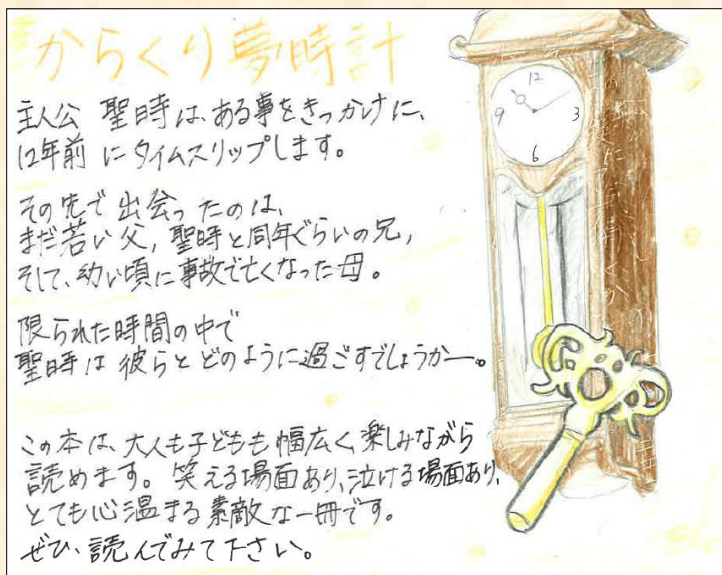 からくり夢時計
主人公 聖時は、ある事をきっかけに、
12年前 にタイムスリップします。
その先で出会ったのは、
まだ若い父, 聖時と同年ぐらいの兄,
そして、幼い頃に事故で亡くなった母。
限られた時間の中で
聖時は 彼らとどのように過ごすでしょうか―。
この本は、大人も子どもも幅広く、楽しみながら
読めます。笑える場面あり、泣ける場面あり、
とても心温まる素敵な一冊です。
ぜひ、読んでみて下さい。
12
9
3
6